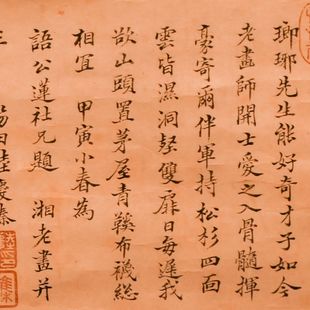 瑯琊先生能好奇才子如今
老畫師開士愛之入骨髓揮
豪寄爾伴軍持松杉四面
雲皆濕洞壑雙扉日每遲我
欲山頭置茅屋青鞵布襪總
相宜 甲寅小春為
語公蓮社兄題 湘老畫并
陸慶臻